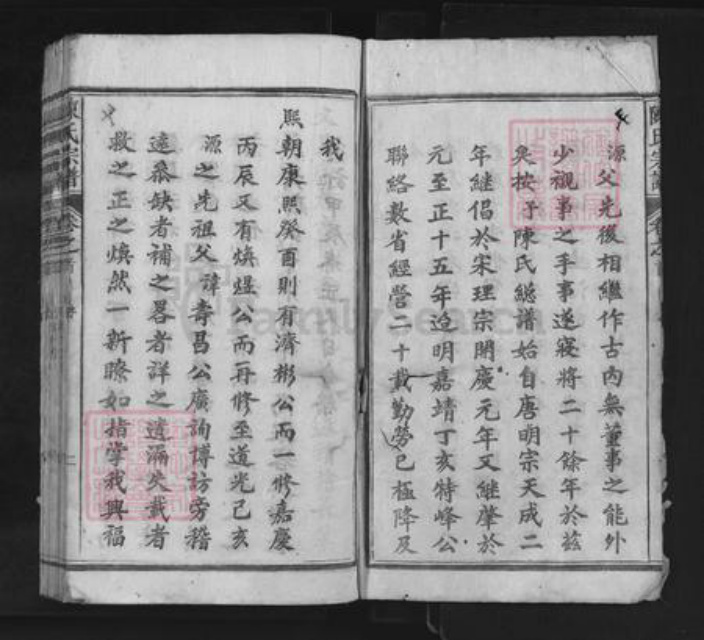 源父先後相繼作古內無董事之能外
少視事之手事遂寢將二十餘年於玆
矣按予陳氏總譜始自唐明宗天成二
年継倡於宋理宗開慶元年又継肇於
元至正十五年迨明嘉靖丁亥特峰公
聯絡數省經營二十載勤勞已極降及
我
熙朝康熙癸酉則有濟彬公而一修嘉慶
丙辰又有煥煜公而再修至道光己亥
源之先祖父諱壽昌公廣詢博訪旁稽
遠蒐缺者補之畧者詳之遺漏欠載者
救之正之煥然一新瞭如指掌我興福
陳氏宗譜
卷之首
FamilySearch